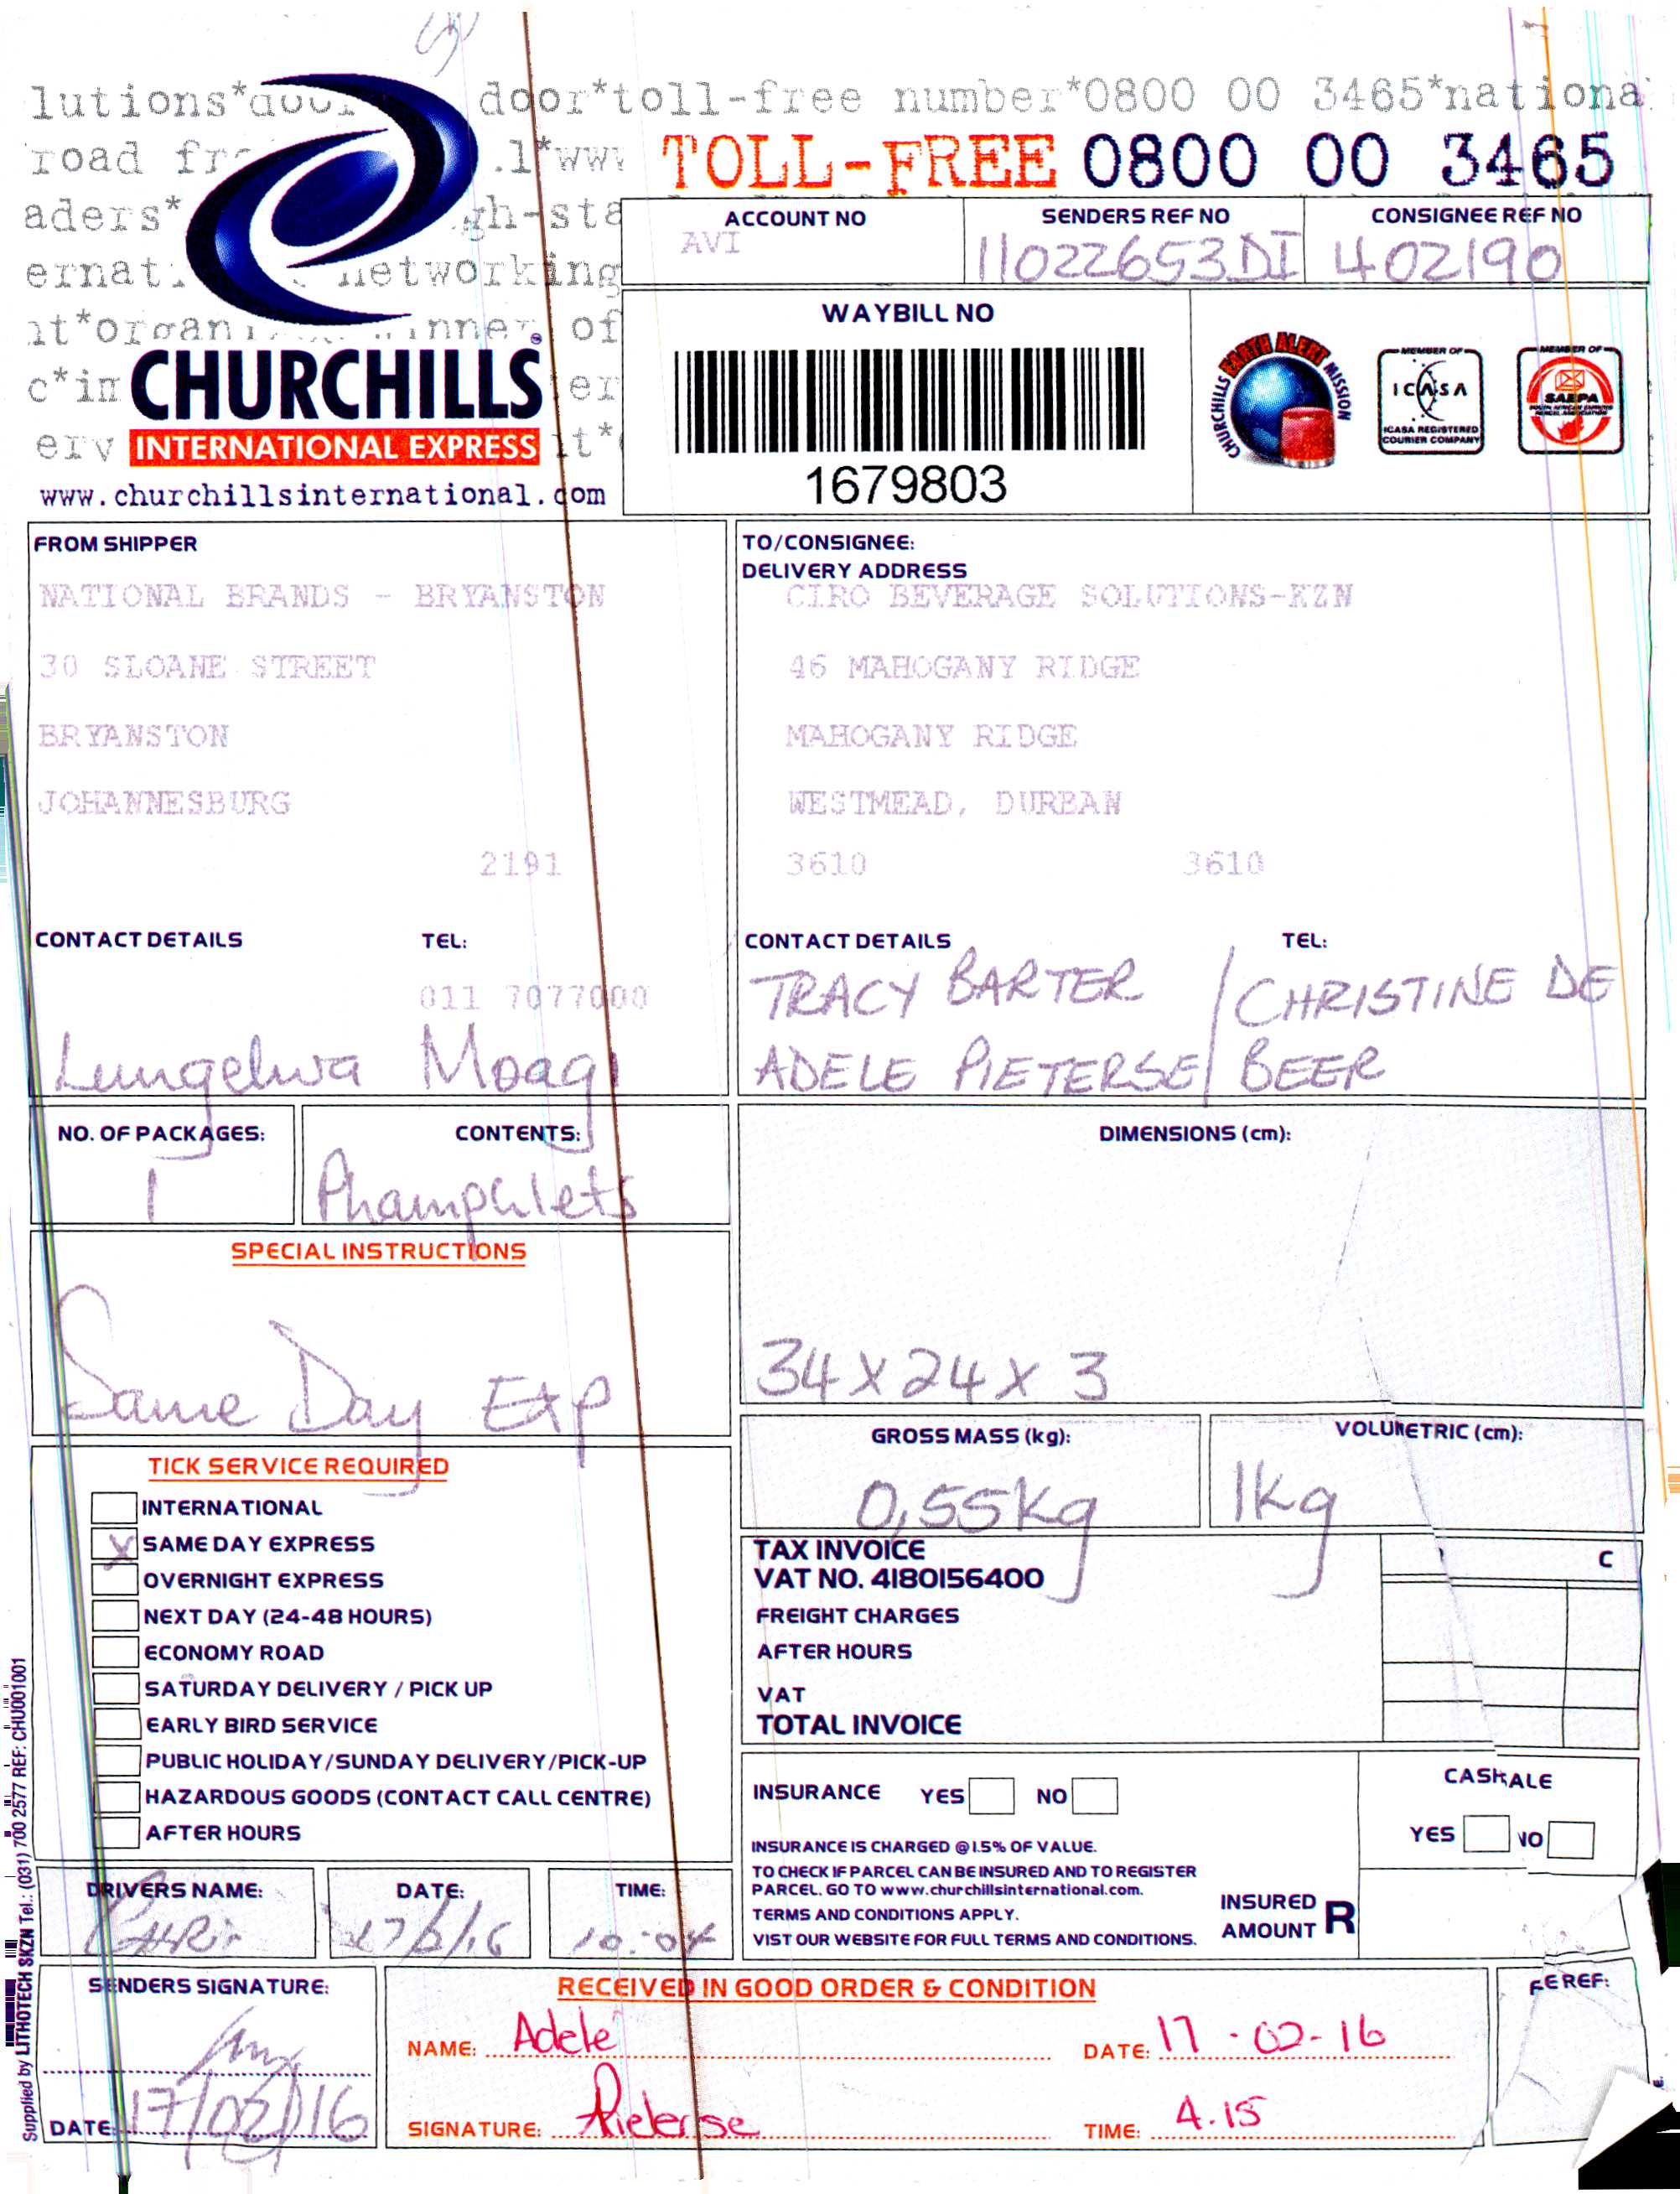 lutions*door door*toll-free number*0800 00 3465*nationa
road fr .l*www TOLL-FREE 0800 00 3465
aders* gh-sta
ernat networking
nt*organi inner of
c*in er
erv it*
CHURCHILLS
INTERNATIONAL EXPRESS
www.churchillsinternational.com
ACCOUNT NO SENDERS REF NO CONSIGNEE REF NO
AVI 11022653DI 402190
WAYBILL NO
1679803
CHURCHILLS EARTH ALERT MISSION
MEMBER OF
ICASA
ICASA REGISTERED
COURIER COMPANY
MEMBER OF
SAEPA
SOUTH AFRICAN EXPRESS
PARCEL ASSOCIATION
FROM SHIPPER
NATIONAL BRANDS - BRYANSTON
30 SLOANE STREET
BRYANSTON
JOHANNESBURG
2191
CONTACT DETAILS TEL:
011 7077000
Lungelwa Moagi
TO/CONSIGNEE:
DELIVERY ADDRESS
CIRO BEVERAGE SOLUTIONS-KZN
46 MAHOGANY RIDGE
MAHOGANY RIDGE
WESTMEAD, DURBAN
3610 3610
CONTACT DETAILS TEL:
TRACY BARTER / CHRISTINE DE
ADELE PIETERSE / BEER
NO. OF PACKAGES: CONTENTS:
1 Phamphlets
SPECIAL INSTRUCTIONS
Same Day Exp
DIMENSIONS (cm):
34 x 24 x 3
GROSS MASS (kg): VOLUMETRIC (cm):
0,55kg 1kg
TICK SERVICE REQUIRED
INTERNATIONAL
X SAME DAY EXPRESS
OVERNIGHT EXPRESS
NEXT DAY (24-48 HOURS)
ECONOMY ROAD
SATURDAY DELIVERY / PICK UP
EARLY BIRD SERVICE
PUBLIC HOLIDAY/SUNDAY DELIVERY/PICK-UP
HAZARDOUS GOODS (CONTACT CALL CENTRE)
AFTER HOURS
TAX INVOICE
VAT NO. 4180156400
C
FREIGHT CHARGES
AFTER HOURS
VAT
TOTAL INVOICE
INSURANCE YES NO
INSURANCE IS CHARGED @ 1.5% OF VALUE.
TO CHECK IF PARCEL CAN BE INSURED AND TO REGISTER
PARCEL. GO TO www.churchillsinternational.com.
TERMS AND CONDITIONS APPLY.
VIST OUR WEBSITE FOR FULL TERMS AND CONDITIONS.
INSURED
AMOUNT R
CASH ALE
YES NO
DRIVERS NAME: DATE: TIME:
17/2/16 10:04
SENDERS SIGNATURE:
DATE: 17/02/16
RECEIVED IN GOOD ORDER & CONDITION
NAME: Adele DATE: 17-02-16
SIGNATURE: Pieterse TIME: 4.15
FE REF:
Supplied by LITHOTECH SKZN Tel.: (031) 700 2577 REF: CHU001001